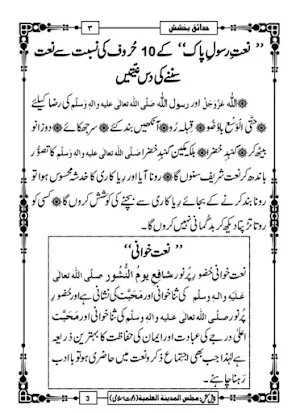 ۳ حدائق بخشش
’’نعتِ رسولِ پاک‘‘ کے 10 حُروف کی نسبت سے نعت
سننے کی دس نیّتیں
اللہ عَزَّوَجَلَّ اور رسول اللہ صلی اللہ تعالی علیہ والہ وسلم کی رضا کیلئے
حتَّی الْوَسْع باوُضُو قِبلہ رُو آنکھیں بند کئے سر جھکائے دوزانو
بیٹھ کر گنبدِ خضرا بلکہ مکینِ گنبدِ خضرا صلی اللہ تعالی علیہ والہ وسلم کا تصوُّر
باندھ کر نعت شریف سنوں گا رونا آیا اور ریاکاری کا خدشہ محسوس ہوا تو
رونا بند کرنے کے بجائے ریاکاری سے بچنے کی کوشش کروں گا کسی کو
روتا تڑپتا دیکھ کر بدگُمانی نہیں کروں گا۔
’’نعت خوانی‘‘
نعت خوانی حُضورِ پُرنور شافِعِ یومُ النُّشُور صلی اللہ تعالی
علیہ والہ وسلم کی ثناخوانی اور مَحَبَّت کی نشانی ہے اور حُضورِ
پُرنور صلی اللہ تعالی علیہ والہ وسلم کی ثناخوانی اور مَحَبَّت
اعلٰی دَرَجے کی عبادت اور ایمان کی حفاظت کا بہترین ذریعہ
ہے لہٰذا جب بھی اجتماعِ ذکر و نعت میں حاضری ہو تو باادب
رہنا چاہئے۔
3 پیش کش: مجلس المدینۃ العلمیۃ (دعوت اسلامی)